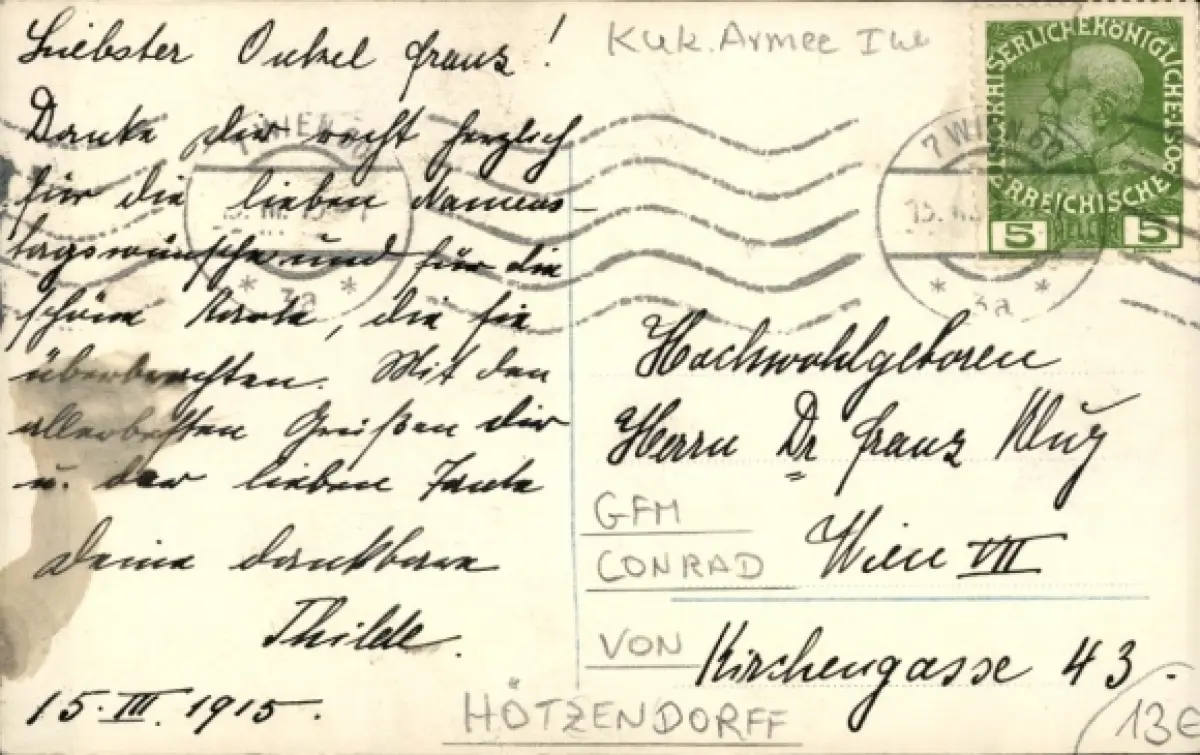 Liebster Onkel Franz!
Danke dir recht herzlich
für die lieben Namens-
tagswünsche und für die
schöne Karte, die sie
überbrachten. Mit den
allerbesten Grüßen dir
u. der lieben Tante
Deine dankbare
Thilde.
15. III. 1915.
K.u.K. Armee
KAISERLICHE KÖNIGLICHE
ÖSTERREICHISCHE
5 5
7 WIEN
* 3a *
7 WIEN 60
* 3a *
Hochwohlgeboren
Herrn Dr Franz
Wien VII
Kirchengasse 43.
GFM
CONRAD
VON
HÖTZENDORFF
13€